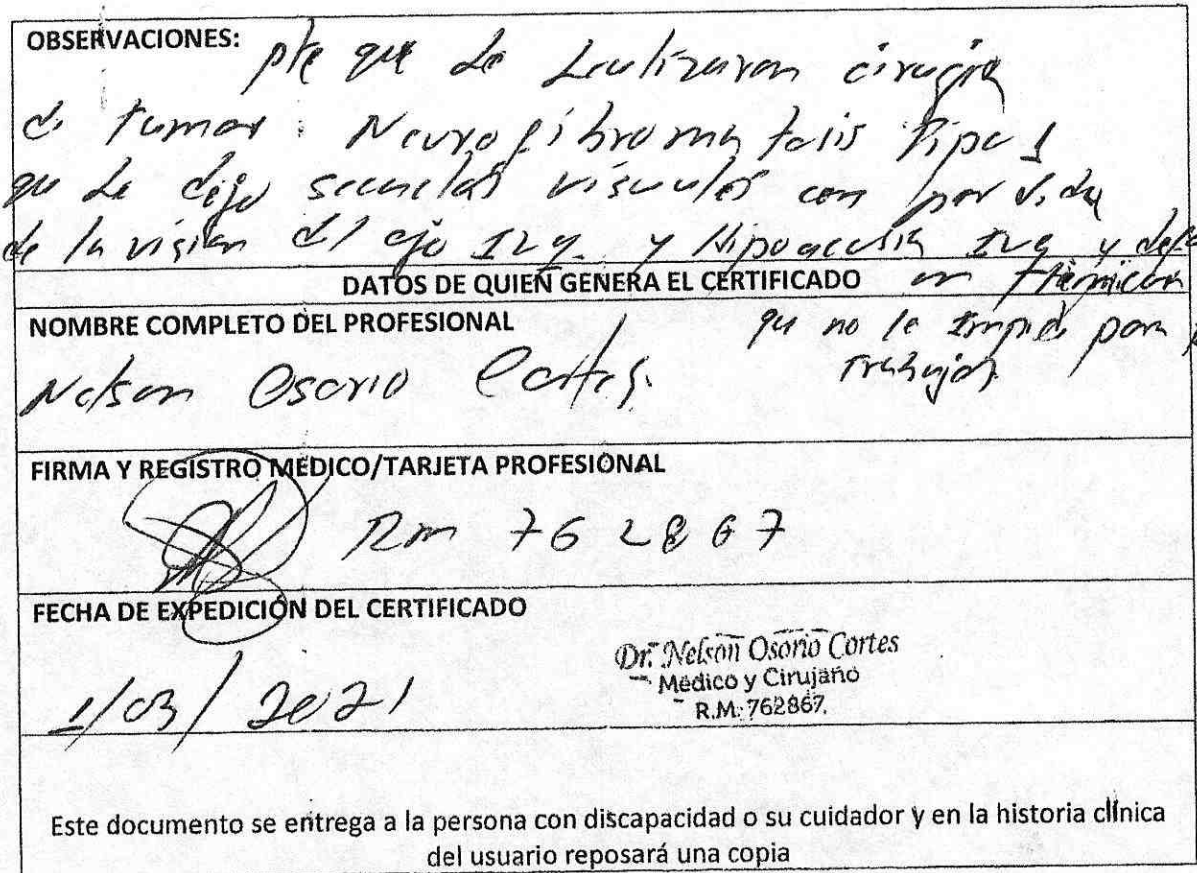 OBSERVACIONES: pte que le realizaron cirugia
de tumor: Neurofibromatosis Tipo 1
que le dejo secuelas visuales con perdida
de la vision del ojo Izq. y Hipoacusia Izq y
DATOS DE QUIEN GENERA EL CERTIFICADO en
NOMBRE COMPLETO DEL PROFESIONAL que no le impide para
Nelson Osorio Cortes. Trabajar
FIRMA Y REGISTRO MEDICO/TARJETA PROFESIONAL
Rm 762867
FECHA DE EXPEDICIÓN DEL CERTIFICADO
Dr. Nelson Osorio Cortes
Médico y Cirujano
R.M. 762867.
1/03/2021
Este documento se entrega a la persona con discapacidad o su cuidador y en la historia clínica
del usuario reposará una copia